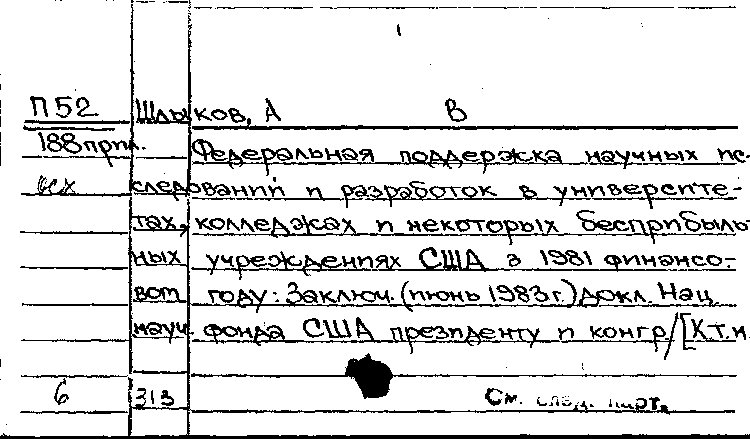 П52 Шлыков, А В
188прпл. Федеральная поддержка научных ис-
осх следований и разработок в университе-
тах, колледжах и некоторых бесприбыль-
ных учреждениях США в 1981 финансо-
вом году: Заключ. (июнь 1983г.) докл. Нац.
науч. фонда США президенту и конгр./[К.т.н.
6 313 См. след. карт.